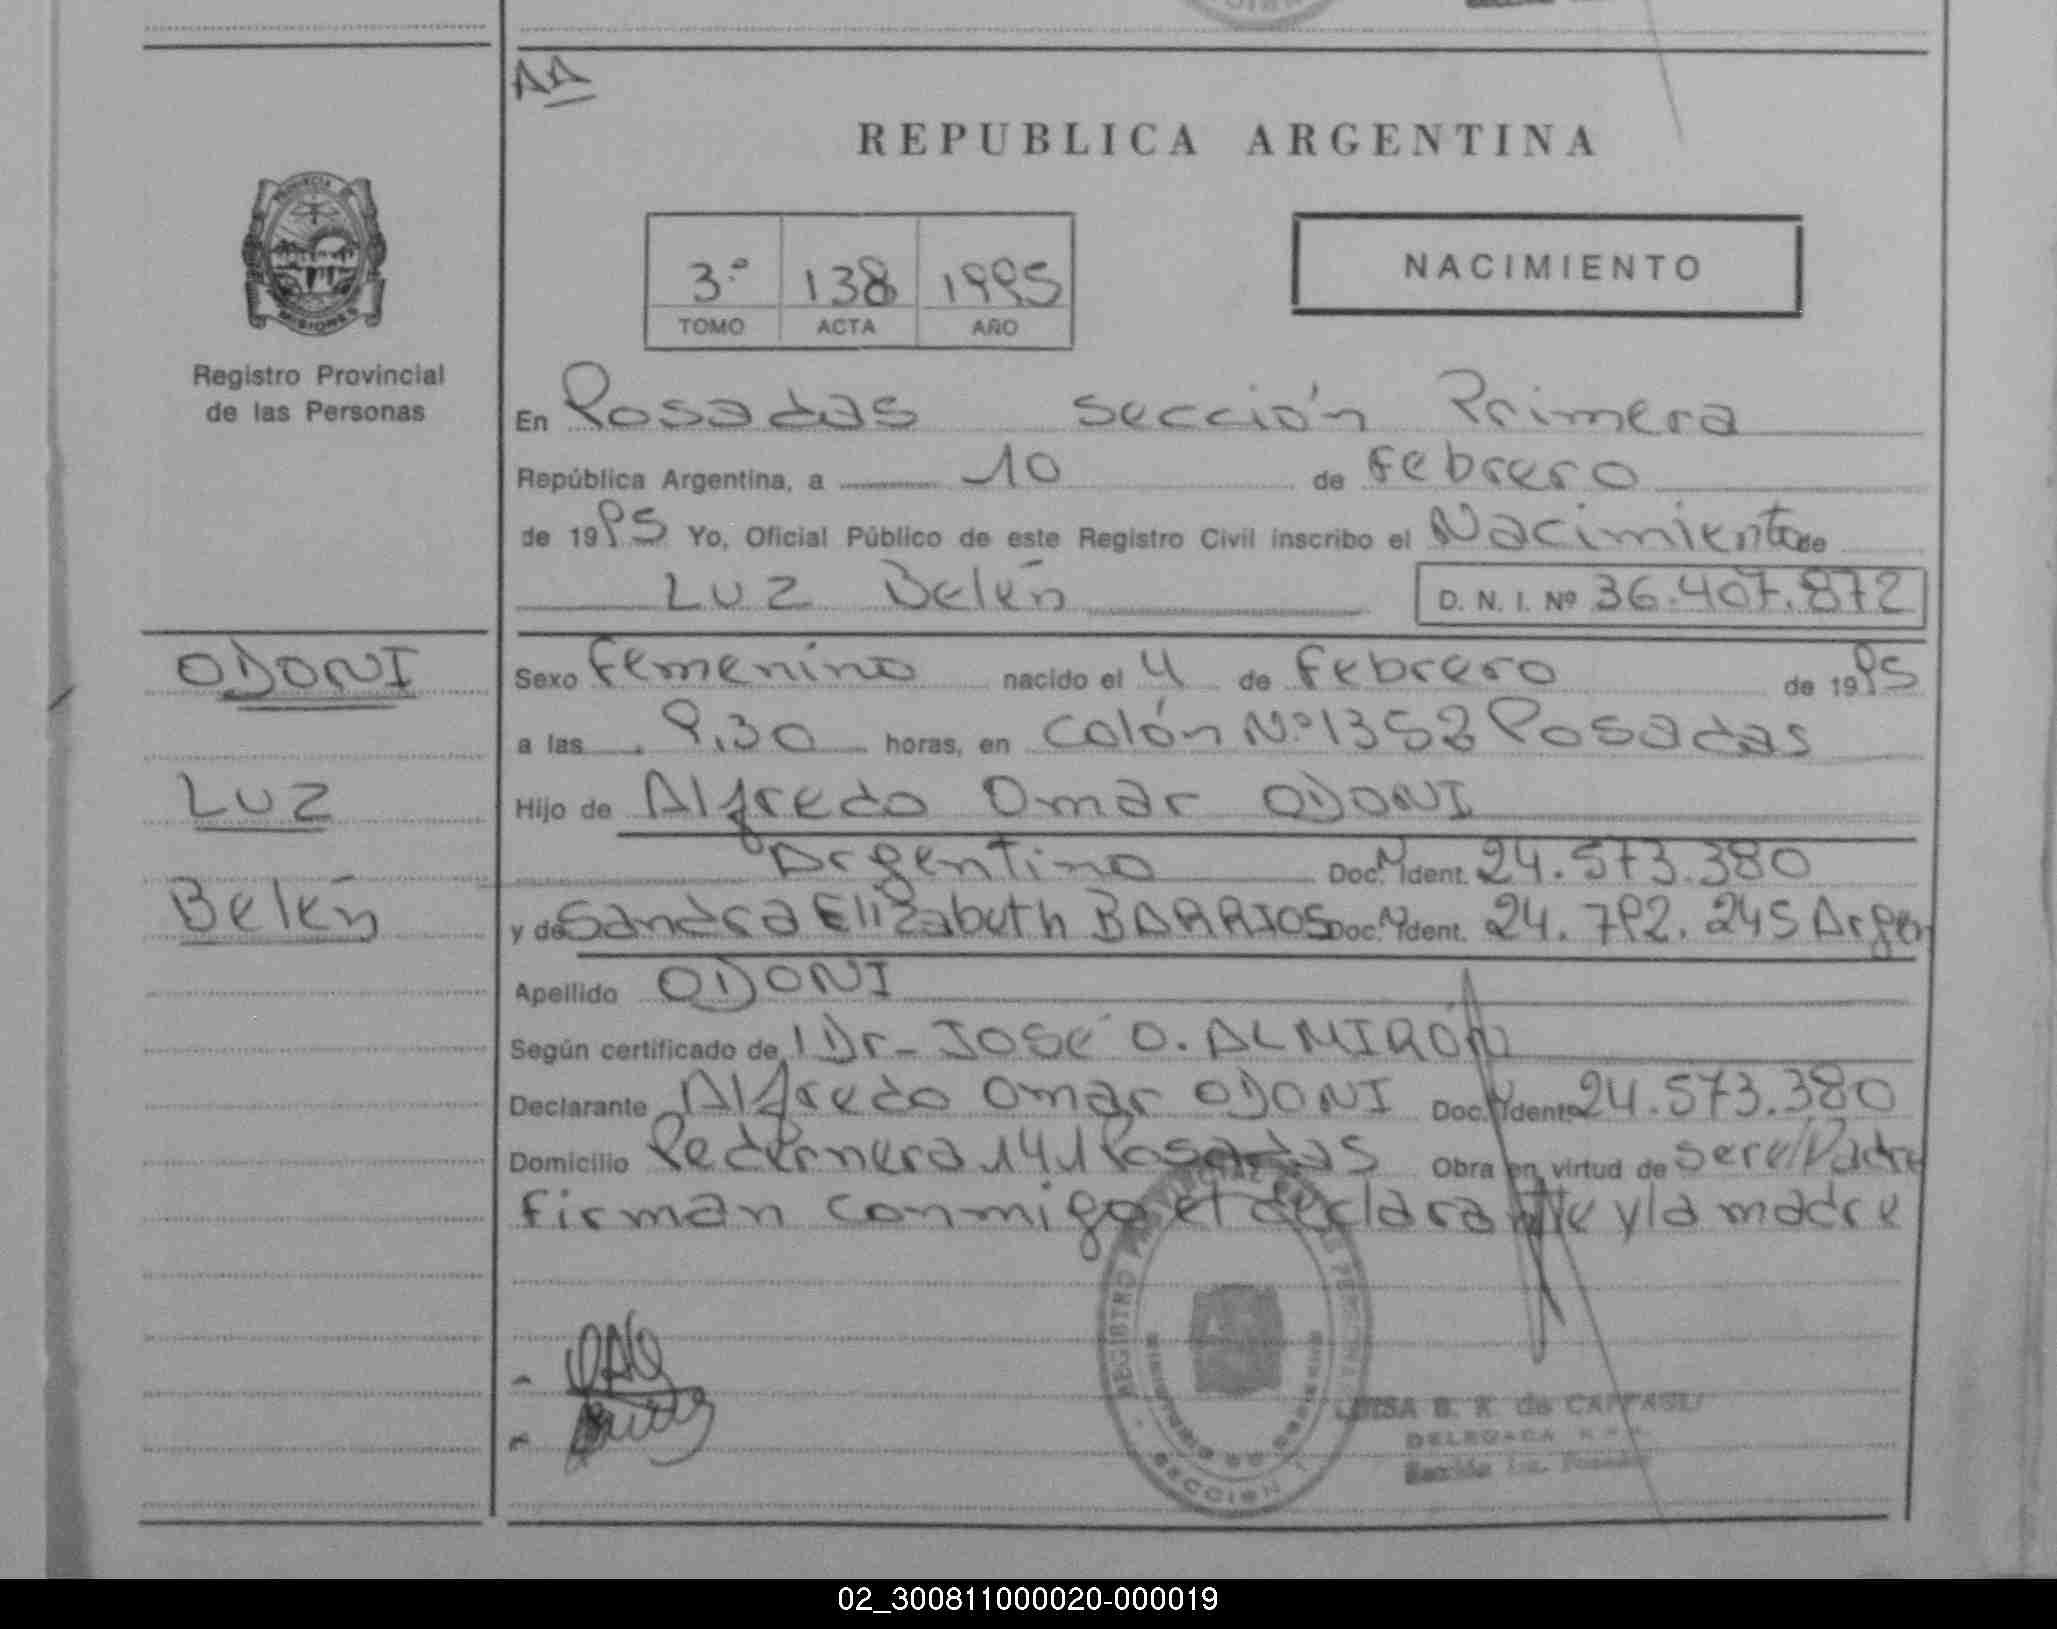 AA
REPUBLICA ARGENTINA
3º 138 1995
TOMO ACTA AÑO
NACIMIENTO
PROVINCIA
MISIONES
Registro Provincial
de las Personas
En Posadas sección Primera
República Argentina, a 10 de Febrero
de 1995 Yo, Oficial Público de este Registro Civil inscribo el Nacimiento de
Luz Belén D. N. I. Nº 36.407.872
ODONI
Luz
Belén
Sexo Femenino nacido el 4 de Febrero de 1995
a las 9,30 horas, en Colón Nº 1352 Posadas
Hijo de Alfredo Omar ODONI
Argentino Doc. Ident. 24.573.380
y de Sandra Elizabeth BARRIOS Doc. Ident. 24.792.245 Argen
Apellido ODONI
Según certificado del Dr- José O. ALMIRÓN
Declarante Alfredo Omar ODONI Doc. Ident. 24.573.380
Domicilio Pedernera 141 Posadas Obra en virtud de ser el Padre
Firman conmigo el declarante y la madre
REGISTRO PROVINCIAL DE LAS PERSONAS
SECCION 1
LUISA B. K. de
DELEGADA
Sección 1ra. Posadas
02_300811000020-000019